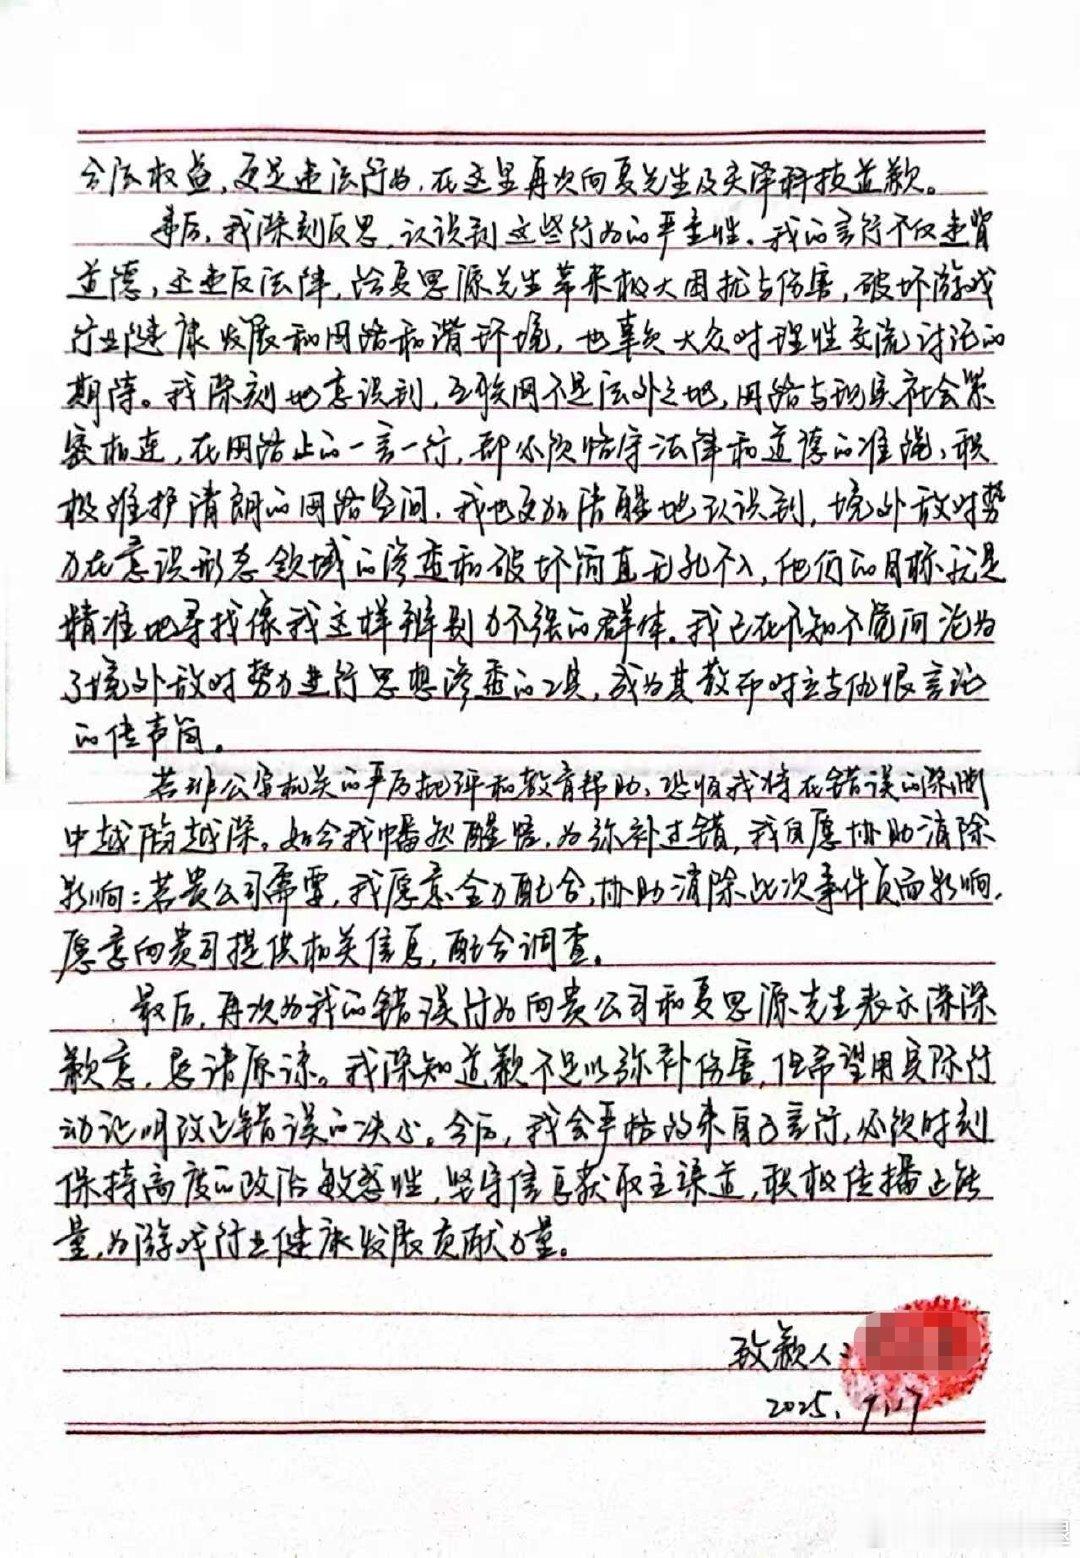 合法权益，更是违法行为，在这里再次向夏先生及灵泽科技道歉。
事后，我深刻反思，认识到这些行为的严重性。我的言行不仅违背
道德，还违反法律，给夏思源先生带来极大困扰与伤害，破坏游戏
行业健康发展和网络和谐环境，也辜负大众对理性交流讨论的
期待。我深刻地意识到，互联网不是法外之地，网络与现实社会紧
密相连，在网络上的一言一行，都必须恪守法律和道德的准绳，积
极维护清朗的网络空间，我也更加清醒地认识到，境外敌对势
力在意识形态领域的渗透和破坏简直无孔不入，他们的目标就是
精准地寻找像我这样辨别力不强的群体。我已在不知不觉间沦为
了境外敌对势力进行思想渗透的工具，成为其散布对立与仇恨言论
的传声筒。
若非公安机关的严厉批评和教育帮助，恐怕我将在错误的深渊
中越陷越深。如今我幡然醒悟，为弥补过错，我自愿协助消除
影响：若贵公司需要，我愿意全力配合，协助消除此次事件负面影响，
愿意向贵司提供相关信息，配合调查。
最后，再次为我的错误行为向贵公司和夏思源先生表示深深
歉意，恳请原谅。我深知道歉不足以弥补伤害，但希望用实际行
动证明改正错误的决心。今后，我会严格约束自己言行，必须时刻
保持高度的政治敏感性，坚守信息获取主渠道，积极传播正能
量，为游戏行业健康发展贡献力量。
致歉人：
2025.9.17